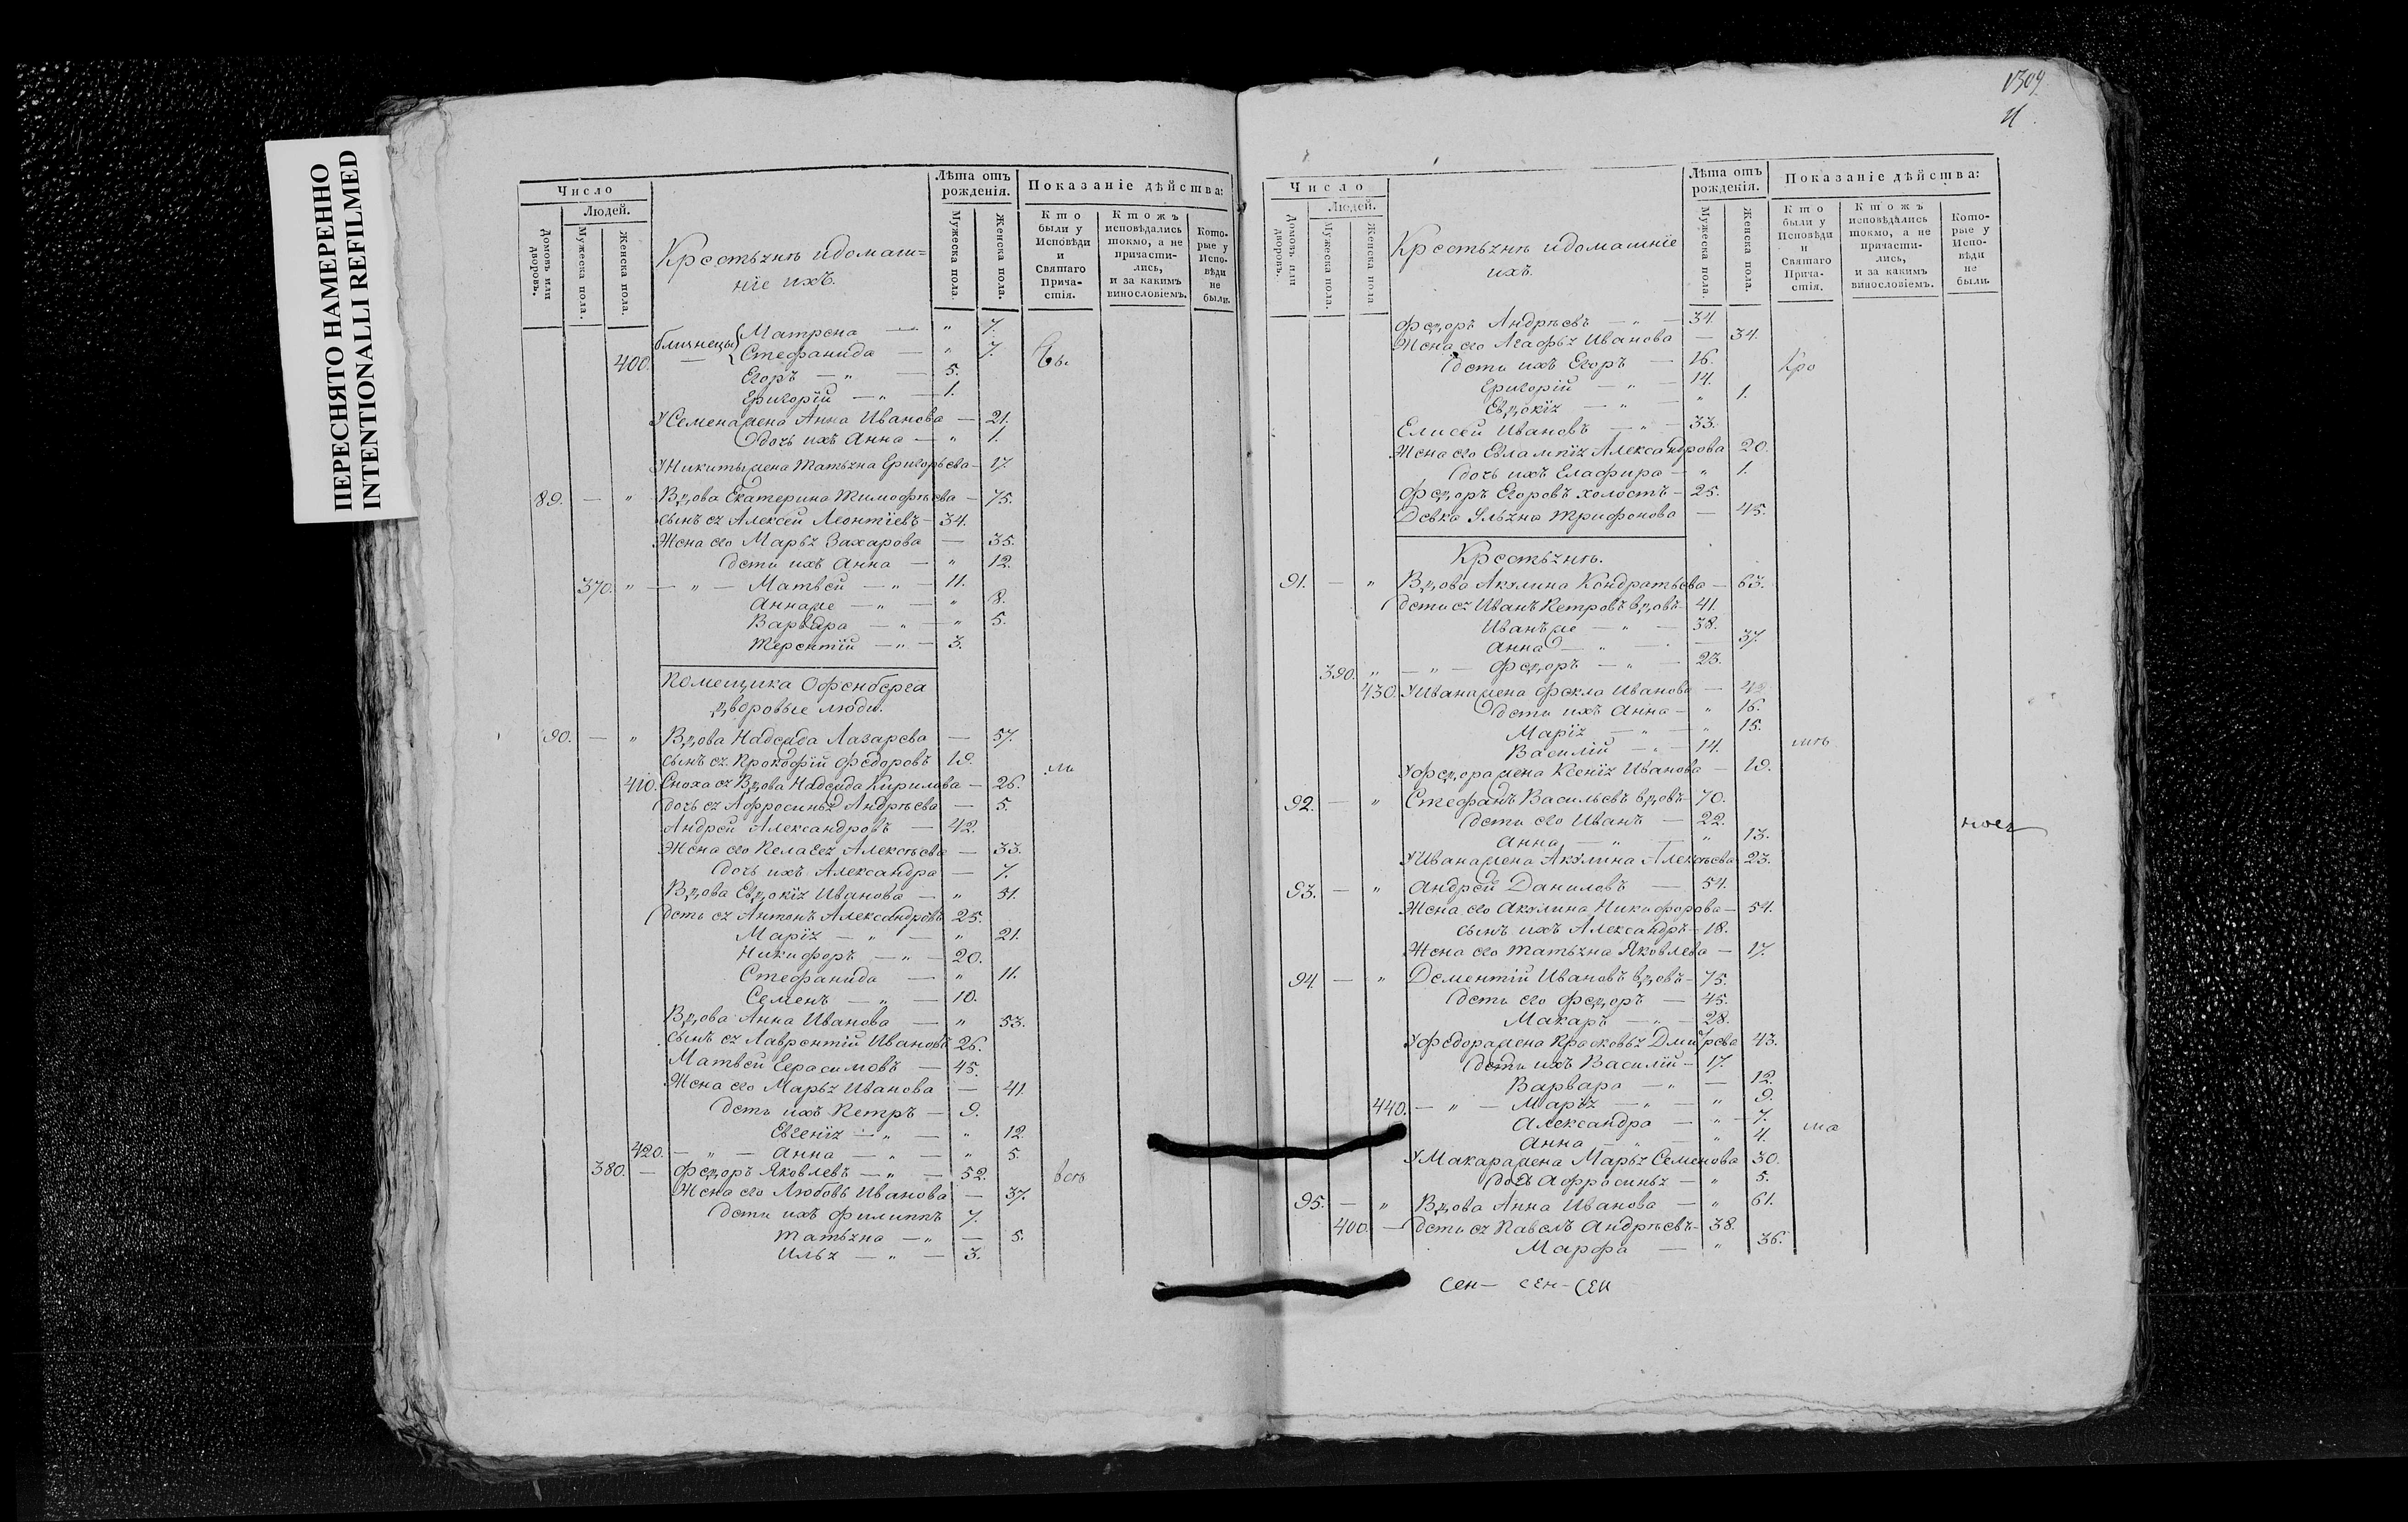 ПЕРЕСНЯТО НАМЕРЕННО
INTENTIONALLI REFILMED
Число
Людей.
Домовъ или дворовъ.
Мужеска пола.
Женска пола.
Крестьянѣ идомаш=
ніе ихъ.
Лѣта отъ рожденія.
Мужеска пола.
Женска пола.
Показаніе дѣйства:
Кто были у Исповѣди и Святаго Причастія.
Ктожъ исповѣдались токмо, а не причастились, и за какимъ винословіемъ.
Которые у Исповѣди не были.
близнецы { Матрена — " 7.
400. — Стефанида — " 7.
Егоръ — " — 5.
Григорій — " — 1.
УСемена жена Анна Иванова — 21.
дочь ихъ Анна — " 1.
УНикиты жена Татьяна Григорьева — 17
89. — " Вдова Екатерина Тимофѣева — 75.
сынъ ея Алексей Леонтіевъ — 34.
Жена его Марья Захарова — 35.
дети ихъ Анна — " 12.
370. " — " — Матвей — " — 11.
Анна же — " — " 8.
Варвара — " — " 5.
Терентій — " — 3.
Помещика Офенберга
дворовые люди.
90. — " Вдова Надежда Лазарева — 57.
сынъ ея Прокофій Федоровъ 19.
410. Сноха ея Вдова Надежда Кирилова — 26.
дочь ея Афросинья Андрѣева — 5.
Андрей Александровъ — 42.
Жена его Пелагея Алексѣева — 33.
дочь ихъ Александра — 7.
Вдова Евдокія Иванова — " 51.
дети ея Антонъ Александровъ 25.
Марія — " — " 21.
Никифоръ — " — 20.
Стефанида — " 11.
Семенъ — " — 10.
Вдова Анна Иванова — " 53.
сынъ ея Лаврентій Ивановъ 26.
Матвей Герасимовъ — 45.
Жена его Марья Иванова — 41.
дети ихъ Петръ — 9.
Евгенія — " — " 12.
420. — " — Анна — " — " 5.
380. — Федоръ Яковлевъ — " — 52.
Жена его Любовь Иванова — 37.
дети ихъ Филиппъ 7.
Татьяна — " — 5.
Илья — " — 3.
бы
ли
всѣ
1309
Число
Людей.
Домовъ или дворовъ.
Мужеска пола.
Женска пола
Крестьянѣ идомашніе
ихъ.
Лѣта отъ рожденія.
Мужеска пола.
Женска пола.
Показаніе дѣйства:
Кто были у Исповѣди и Святаго Причастія.
Ктожъ исповѣдались токмо, а не причастились, и за какимъ винословіемъ.
Которые у Исповѣди не были.
Федоръ Андрѣевъ — " — 34.
Жена его Агафья Иванова — 34.
дети ихъ Егоръ — 16.
Григорій — " — 14.
Евдокія — " — " 1.
Елисей Ивановъ — " — 33.
Жена его Евлампія Александрова 20.
дочь ихъ Глафира — " 1.
Федоръ Егоровъ холостъ — 25.
Девка Ульяна Трифонова — 45.
Крестьянѣ.
91. — " Вдова Акулина Кондратьева — 63.
дети ея Иванъ Петровъ вдовъ — 41.
Иванъ же — " — 38.
Анна — " — 37.
390. " — " — Федоръ — " — 23.
430. УИвана жена Фекла Иванова — 42
дети ихъ Анна — " 16.
Марія — " — " 15.
Василій — " — 14.
УФедора жена Ксенія Иванова — 19.
92. — " Стефанъ Васильевъ вдовъ — 70.
дети его Иванъ — 22.
Анна — " — " 13.
УИвана жена Акулина Алексѣева 23.
93. — " Андрей Даниловъ — 54.
Жена его Акулина Никифорова — 54.
сынъ ихъ Александръ — 18.
Жена его Татьяна Яковлева — 17.
94. — " Дементій Ивановъ вдовъ — 75.
дети его Федоръ — 45.
Макаръ — " — 28.
УФедора жена Прасковья Дмитрева 43.
дети ихъ Василій — 17.
Варвара — " — 12.
440. — " — Марья — " — " 9.
Александра — " — 7.
Анна — " — " 4.
УМакара жена Марья Семенова 30.
дочь Афросинья — " 5.
95. — " Вдова Анна Иванова — " 61.
400. — дети ея Павелъ Андрѣевъ — 38.
Марфа — " 36.
Кро
мѣ
ма
сен- сен-сеи